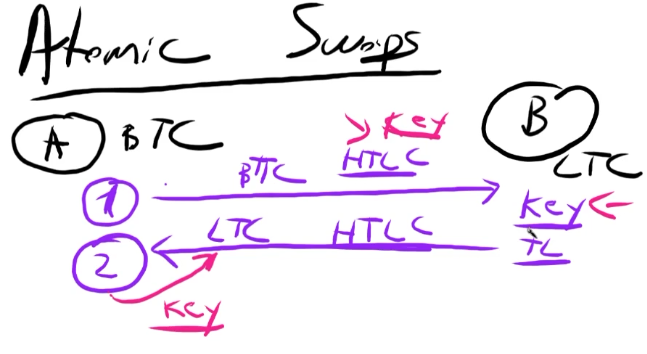 Atomic Swaps
A BTC
B
LTC
> Key
BTC HTLC
1
Key
TL
LTC HTLC
2
Key